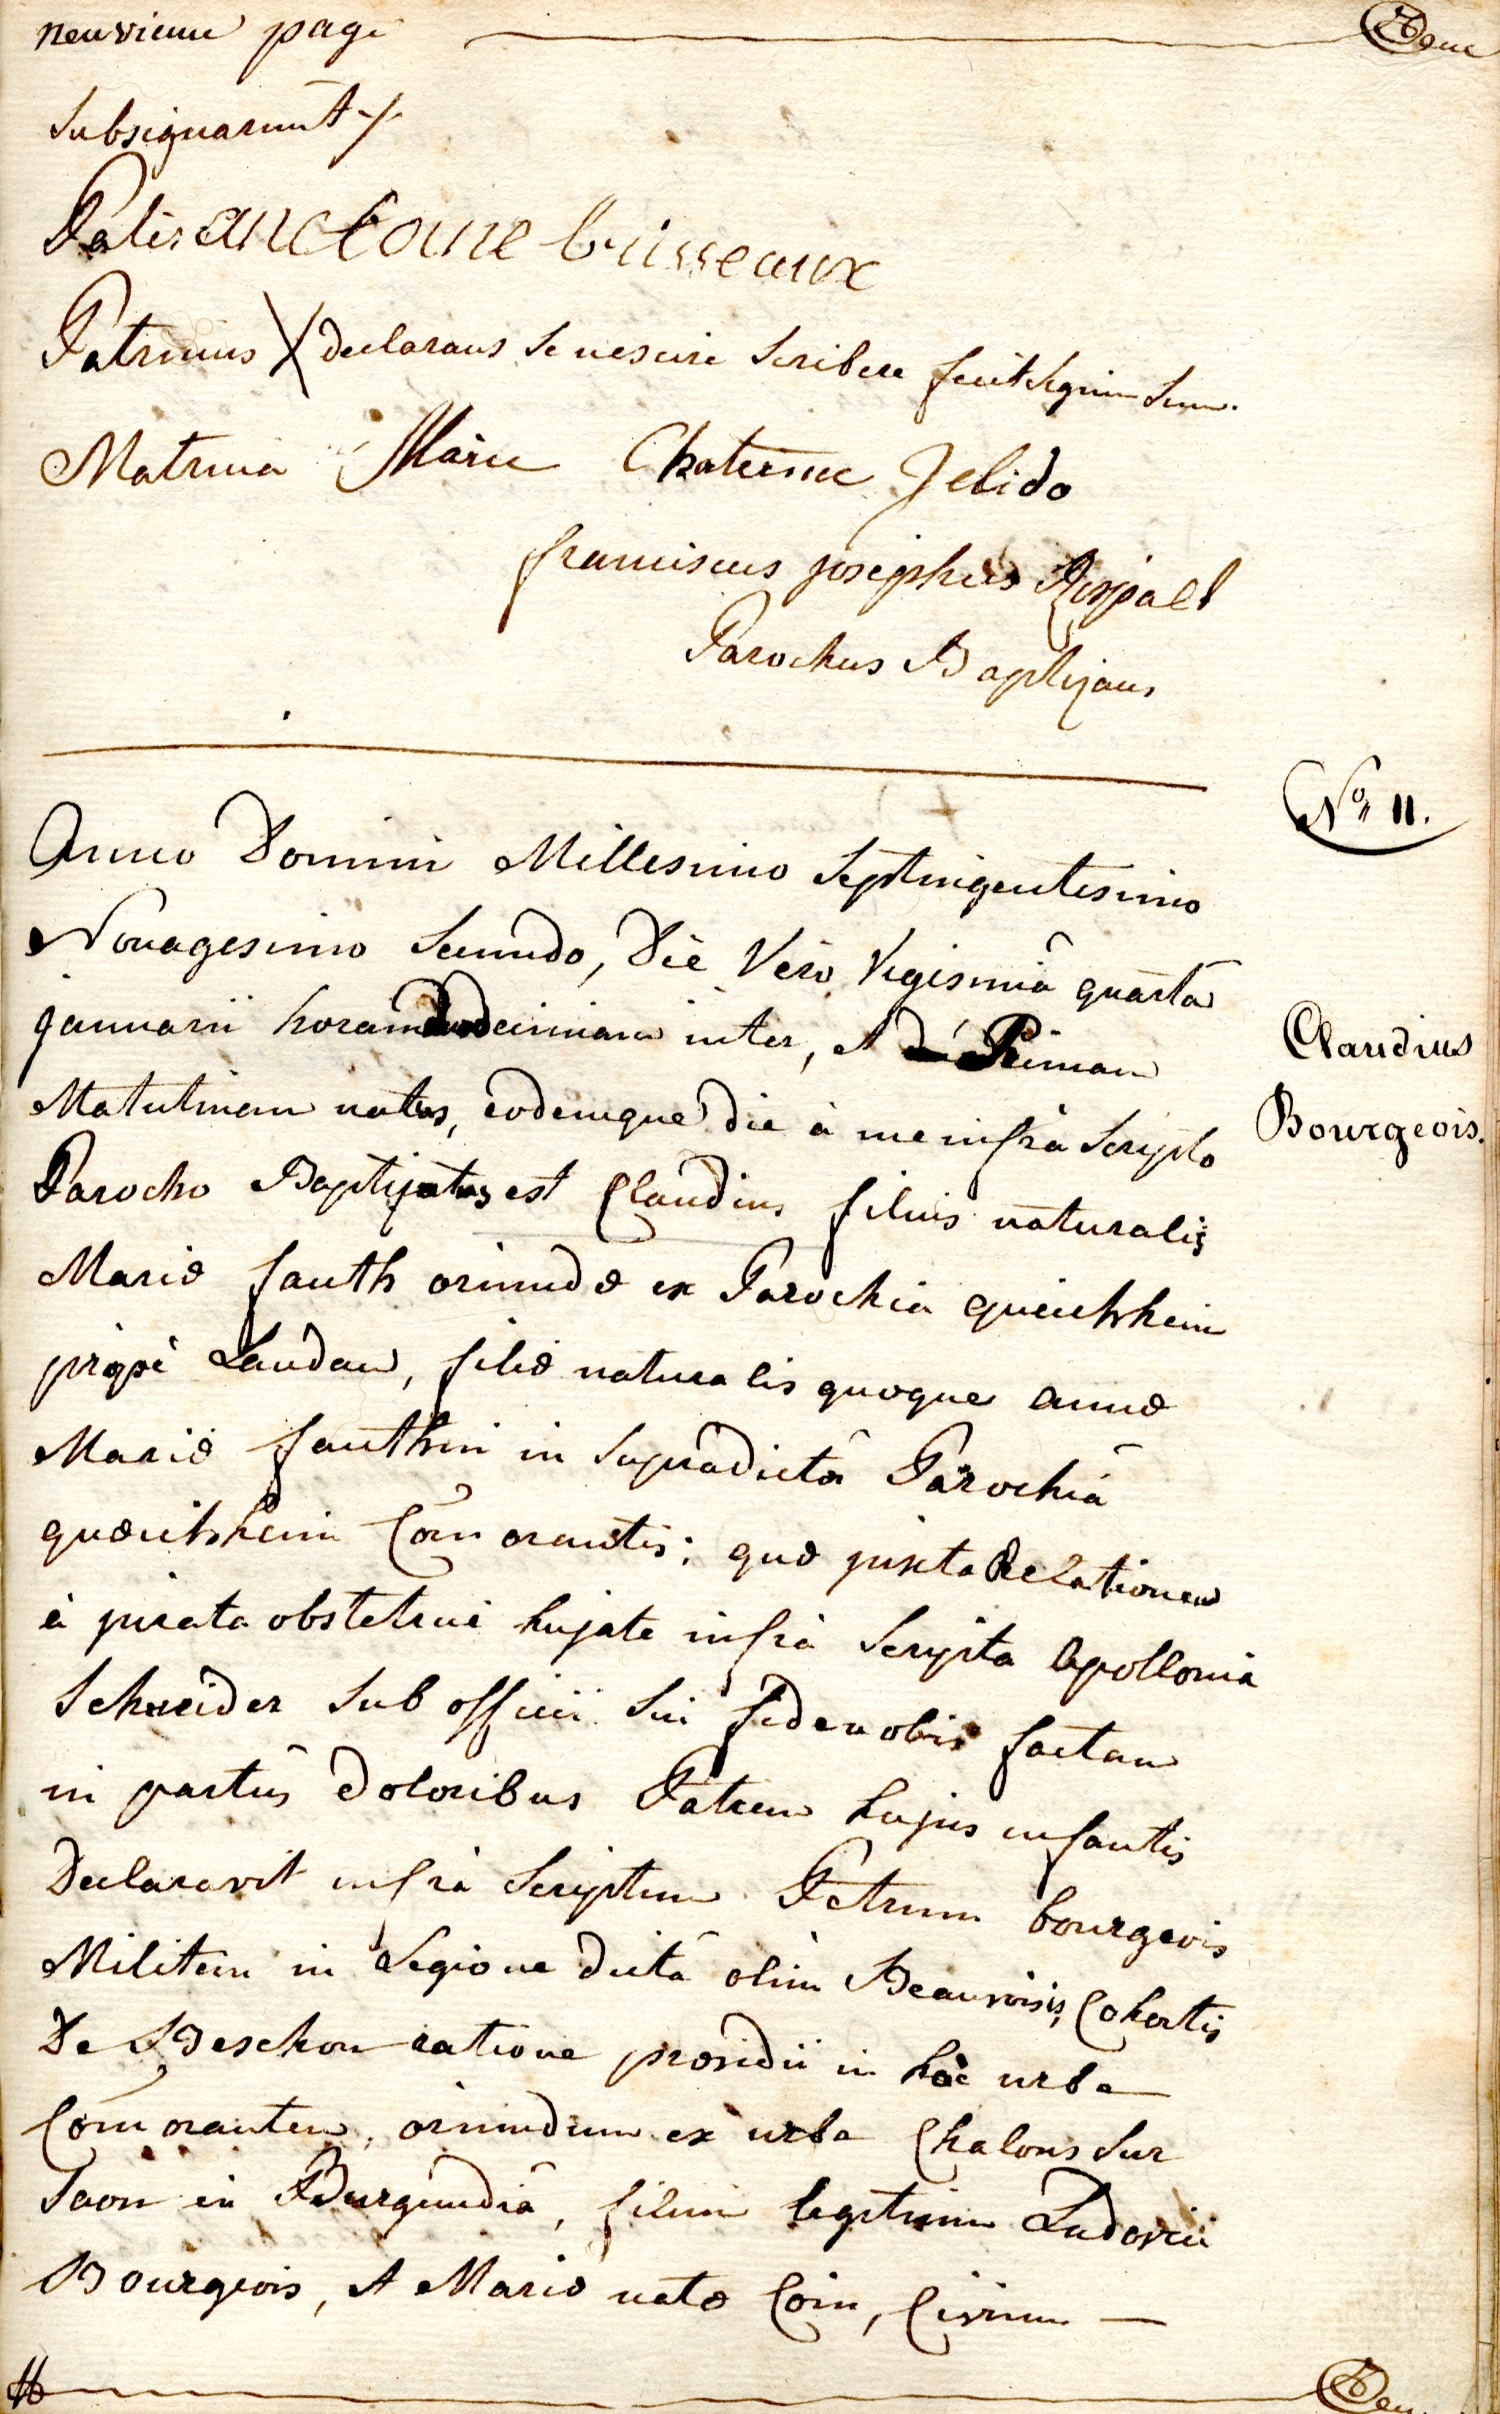 neuvieme page
Subsignarunt -/.
Pater anctoine brisseaux
Patrinus X declarans se nescire scribere fecit signum suum.
Matrina Marie Chaterine Jelido
franciscus josephus
Parochus Baptizans
No. 11.
Anno Domini Millesimo Septingentesimo
Nonagesimo Secundo, Die Vero Vigesimâ quartâ
januarii horam duodecimam inter, et Primam
Matutinam natus, eodemque die à me infrà Scripto
Claudius
Bourgeois.
Parocho Baptizatus est Claudius filius naturalis
Mariæ fauth oriundæ ex Parochia queichheim
propè Landau, filiæ naturalis quoque annæ
Mariæ fauthin in Supradictâ Parochiâ
quæichheim Com̃orantis; quæ juxta Relationem
à jurata obstetrice hujate infrà Scripta apollonia
Schneider sub officii sui fide nobis factam
in partûs doloribus Patrem hujus infantis
Declaravit infrà Scriptum Petrum bourgeois
Militem in Legione dictâ olim Beauvoisis, Cohortis
De Beschon ratione præsidii in hâc urbe
Com̃orantem, oriundum ex urbe Chalons Sur
Saon in Burgundiâ, filium legitimum Ludovici
Bourgeois, et Mariæ natæ Coin, Civium —